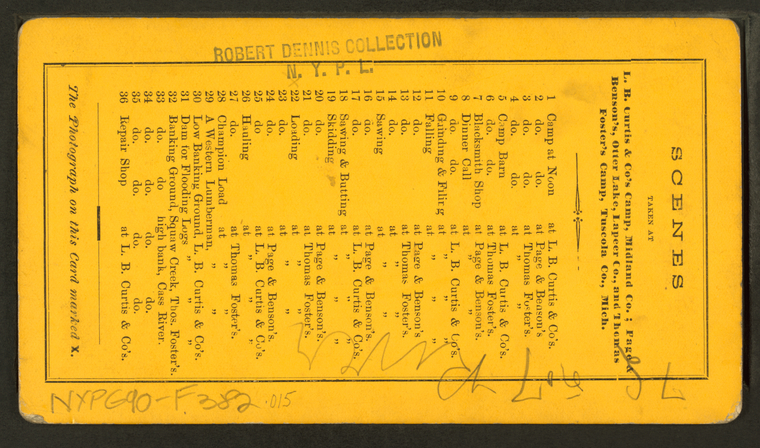 ROBERT DENNIS COLLECTION
N. Y. P. L.
SCENES
TAKEN AT
L. B. Curtis & Co's Camp, Midland Co.; Page &
Benson's, Otter Lake, Lapeer Co., and Thomas
Foster's Camp, Tuscola Co., Mich.
1 Camp at Noon at L. B. Curtis & Co's.
2 do. do. at Page & Benson's.
3 do. do. at Thomas Foster's.
4 do. do. at " "
5 Camp Barn at L. B. Curtis & Co's.
6 do. do. at Thomas Foster's.
7 Blacksmith Shop at Page & Benson's.
8 Dinner Call at " "
9 do. do. at L. B. Curtis & Co's.
10 Grinding & Filing at " "
11 Falling at " "
12 do. at Page & Benson's.
13 do. at Thomas Foster's.
14 do. at " "
15 Sawing at " "
16 do. at Page & Benson's.
17 do. at L. B. Curtis & Co's.
18 Sawing & Butting at " "
19 Skidding at " "
20 do. at Page & Benson's.
21 do. at Thomas Foster's.
22 Loading at " "
23 do. at " "
24 do. at Page & Benson's.
25 do at L. B. Curtis & Co's.
26 Hauling at " "
27 do. at Thomas Foster's.
28 Champion Load at " "
29 A Western Lumberman, " "
30 Low Banking Ground, L. B. Curtis & Co's.
31 Dam for Flooding Logs " " "
32 Banking Ground, Squaw Creek, Thos. Foster's.
33 do. do high bank, Cass River.
34 do. do. do. do.
35 do. do. do. do.
36 Repair Shop at L. B. Curtis & Co's.
The Photograph on this Card marked x.
NYPG90-F382 .015